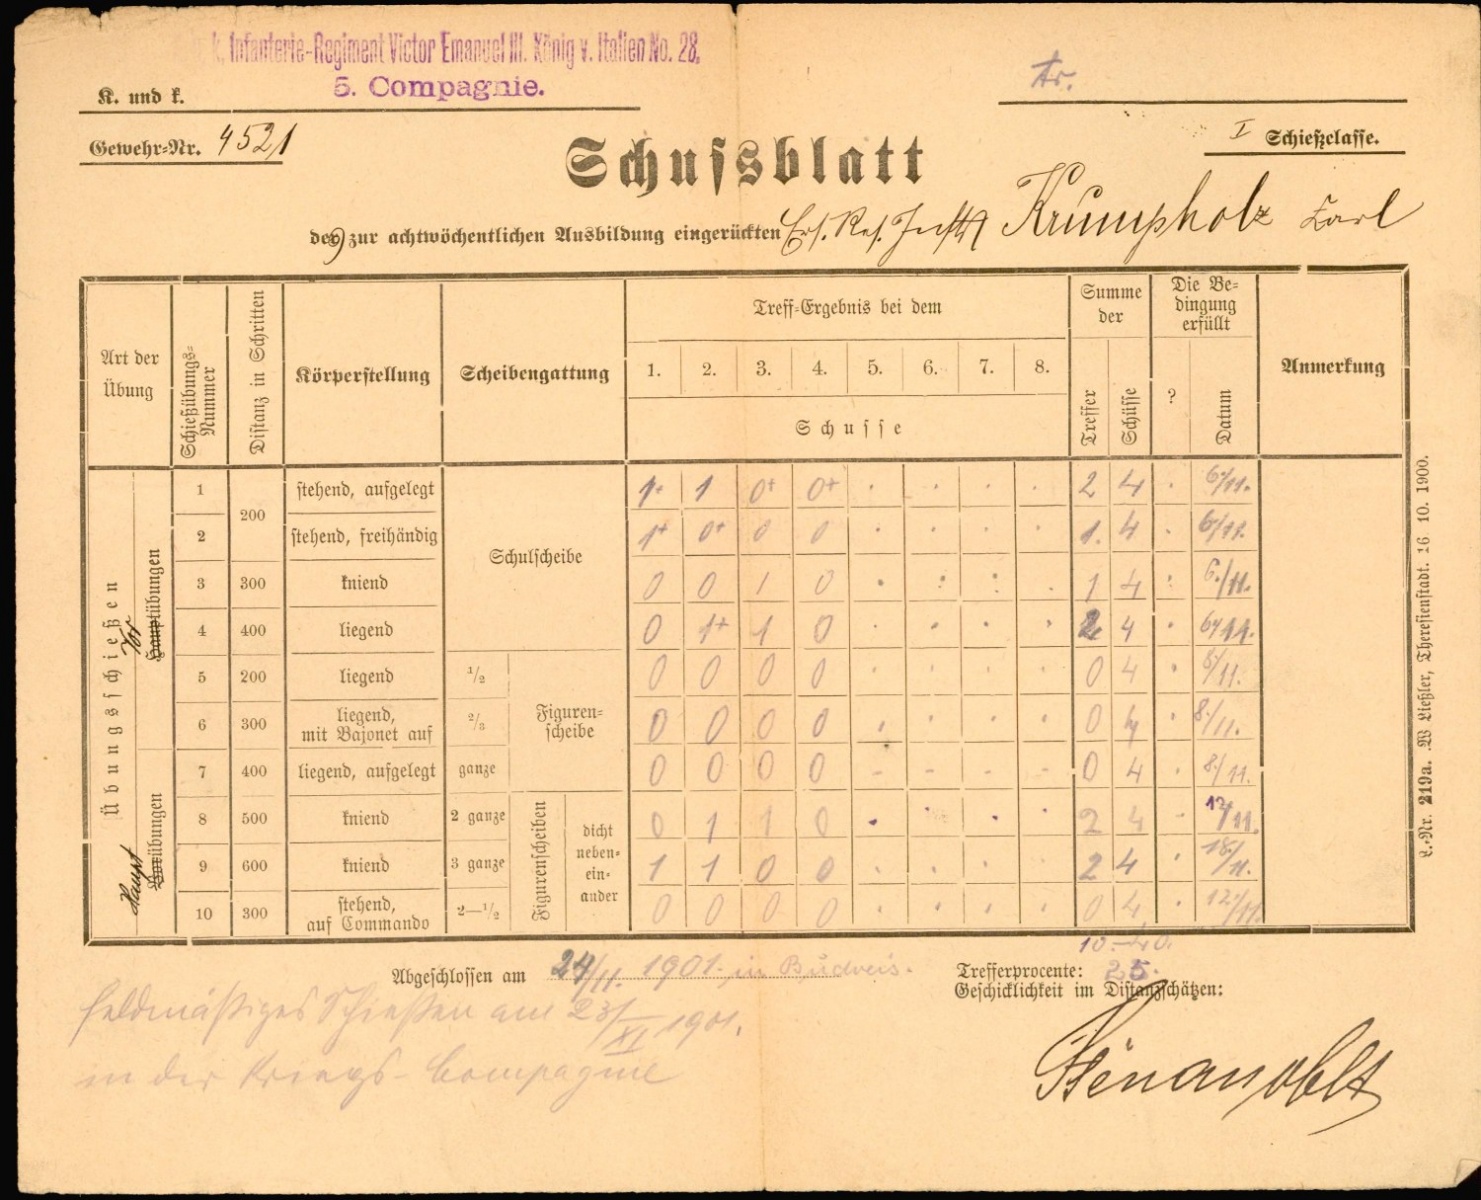 k. Infanterie-Regiment Victor Emanuel III. König v. Italien No. 28.
5. Compagnie.
K. und k.
Tr.
Gewehr-Nr. 4521
I Schießclasse.
Schussblatt
des zur achtwöchentlichen Ausbildung eingerückten Ers. Res. Inftt Krumpholz Karl
Art der Übung
Schießübungs-Nummer
Distanz in Schritten
Körperstellung
Scheibengattung
Treff-Ergebnis bei dem
1. 2. 3. 4. 5. 6. 7. 8.
Schusse
Summe der
Treffer
Schüsse
Die Bedingung erfüllt
?
Datum
Anmerkung
Übungsschießen
Vor Hauptübungen
Haupt Vorübungen
1 200 stehend, aufgelegt Schulscheibe 1+ 1 0+ 0+ . . . . 2 4 . 6./11.
2 stehend, freihändig 1+ 0+ 0 0 . . . . 1. 4 . 6/11.
3 300 kniend 0 0 1 0 . : : . 1 4 : 6./11.
4 400 liegend 0 1+ 1 0 . . . . 2 4 . 6/11.
5 200 liegend 1/2 Figuren-scheibe 0 0 0 0 . . . . 0 4 . 8/11.
6 300 liegend, mit Bajonet auf 2/3 0 0 0 0 . . . . 0 4 . 8/11.
7 400 liegend, aufgelegt ganze 0 0 0 0 - - - - 0 4 . 8/11.
8 500 kniend 2 ganze Figurenscheiben dicht neben-ein-ander 0 1 1 0 . . . . 2 4 - 12/11.
9 600 kniend 3 ganze 1 1 0 0 . . . . 2 4 . 18/11.
10 300 stehend, auf Commando 2—1/2 0 0 0 0 . . . . 0 4 . 12./11.
10.—40.
Abgeschlossen am 24/11. 1901. in Budweis.
Trefferprocente: 25.
Geschicklichkeit im Distanzschätzen:
feldmäßiges Schießen am 23/XI 1901.
in der Kriegs-Compagnie
L.-Nr. 219a. W Ließler, Theresienstadt. 16 10. 1900.